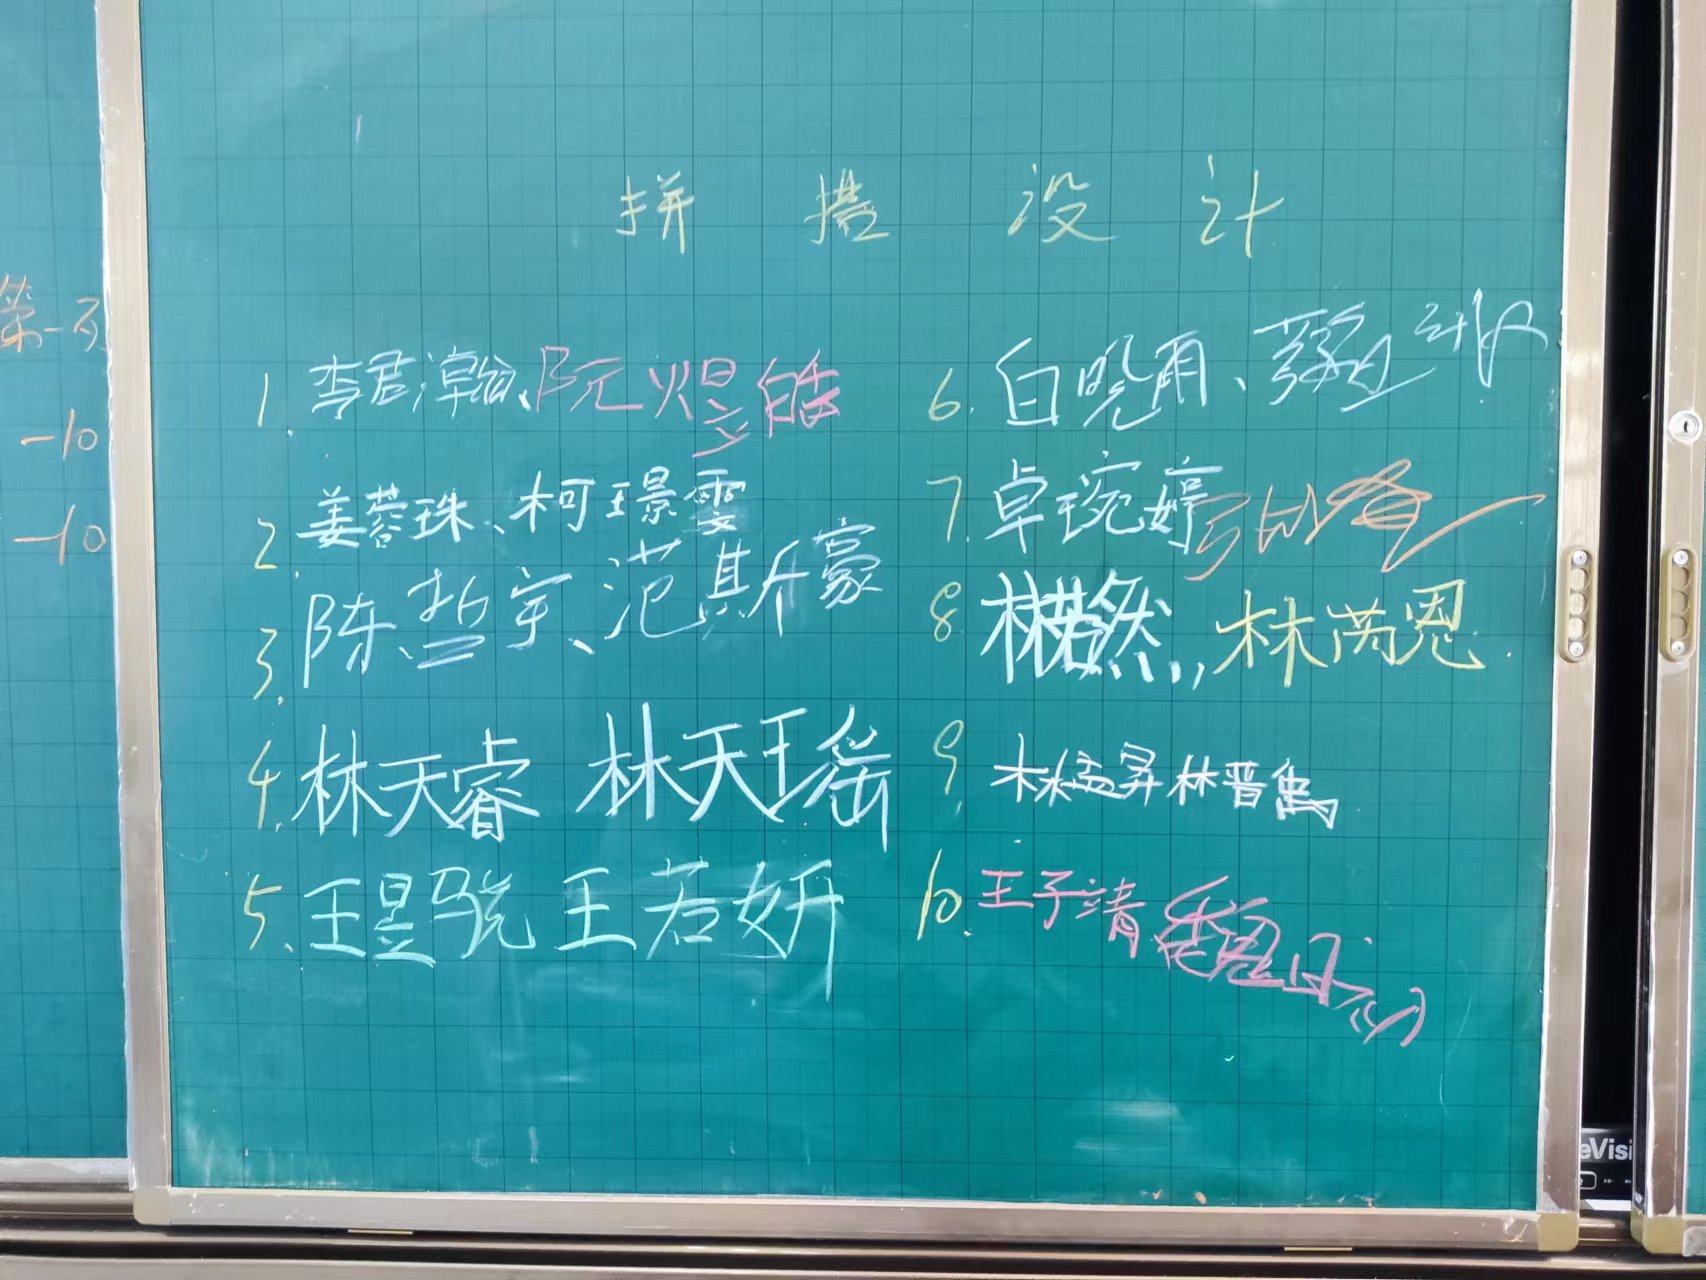 拼搭设计
1. 李君瀚、阮煜皓
2. 姜蓉珠、柯璟雯
3. 陈哲宇、范斯豪
4. 林天睿 林天瑶
5. 王昱骁 王若妍
6. 白晓雨、
7. 卓琬婷
8. 林若然, 林芮恩
9. 林孟昇 林晋隽
10. 王子清
第一
-10
-10
eVisi